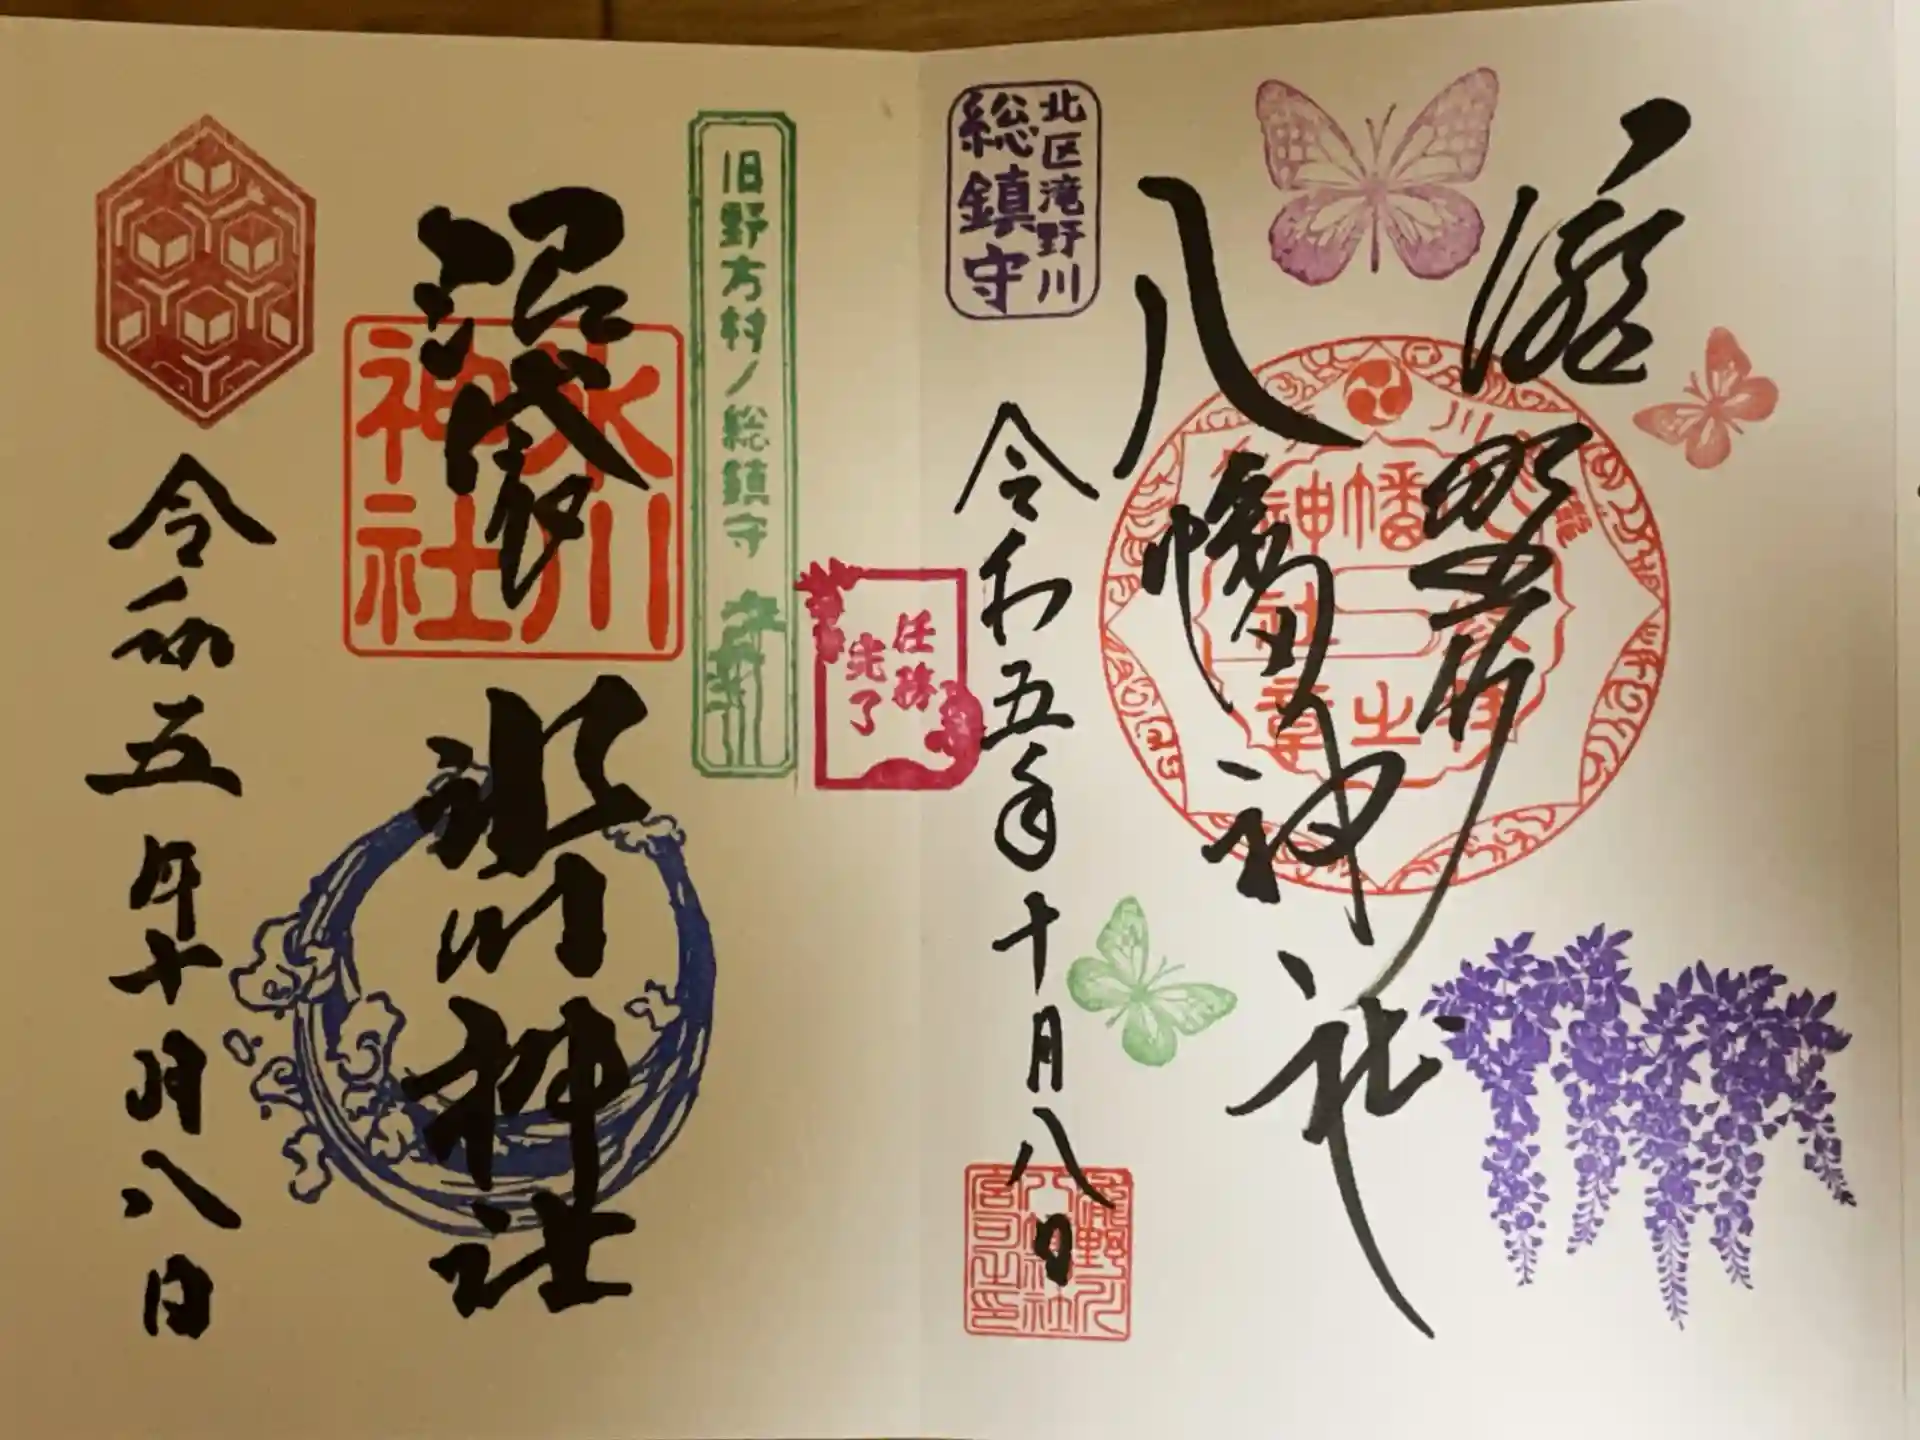 瀧野川
八幡神社
北区滝野川
総鎮守
令和五年十月八日
任務
完了
旧野方村ノ総鎮守
沼袋
氷川神社
氷川
神社
令和五年十月八日